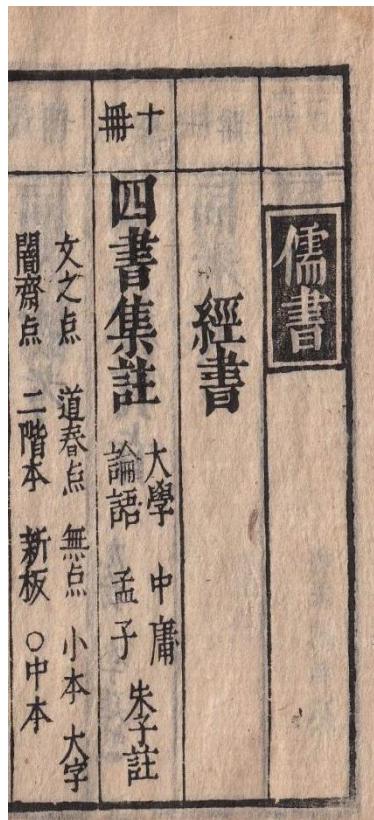 儒書
經書
十冊
四書集註
大學 中庸 朱子註
論語 孟子
文之点 道春点 無点 小本 大字
闇齋点 二階本 新板 ○中本